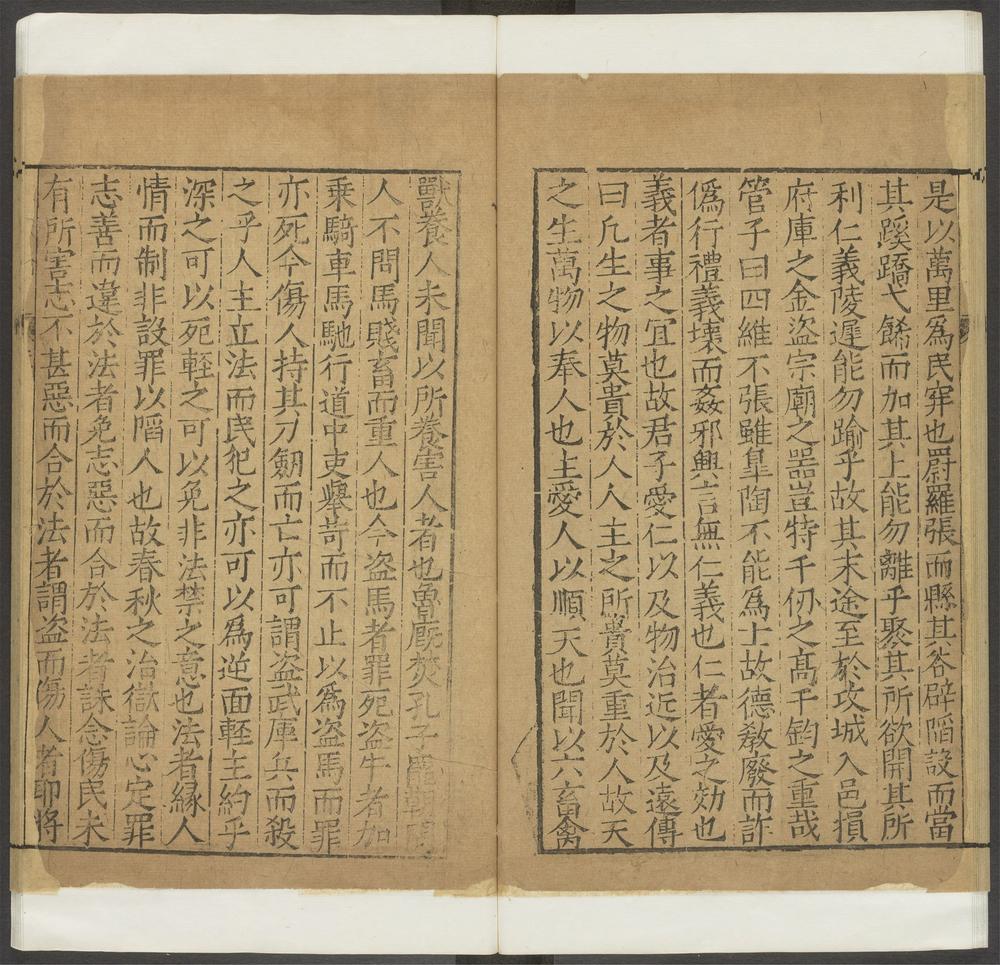 是以萬里爲民穽也罻羅張而縣其谷辟陷設而當
其蹊蹻弋餙而加其上能勿離乎聚其所欲開其所
利仁義陵遲能勿踰乎故其末途至於攻城入邑損
府庫之金盜宗廟之噐豈特千仞之髙千鈞之重哉
管子曰四維不張雖臯陶不能爲士故德敎廢而詐
僞行禮義壊而姦邪興言無仁義也仁者愛之効也
義者事之宜也故君子愛仁以及物治近以及遠傳
曰凢生之物莫貴於人人主之所貴莫重於人故天
之生萬物以奉人也主愛人以順天也聞以六畜禽
獸養人未聞以所養害人者也魯廐焚孔子罷朝問
人不問馬賤畜而重人也今盗馬者罪死盗牛者加
乗騎車馬馳行道中吏舉苛而不止以爲盗馬而罪
亦死今傷人持其刀劔而亡亦可謂盗武庫兵而殺
之乎人主立法而民犯之亦可以爲逆面輕主約乎
深之可以死輕之可以免非法禁之意也法者縁人
情而制非設罪以陷人也故春秋之治獄論心定罪
志善而違於法者免志惡而合於法者誅念傷民未
有所害志不甚惡而合於法者謂盗而傷人者耶將